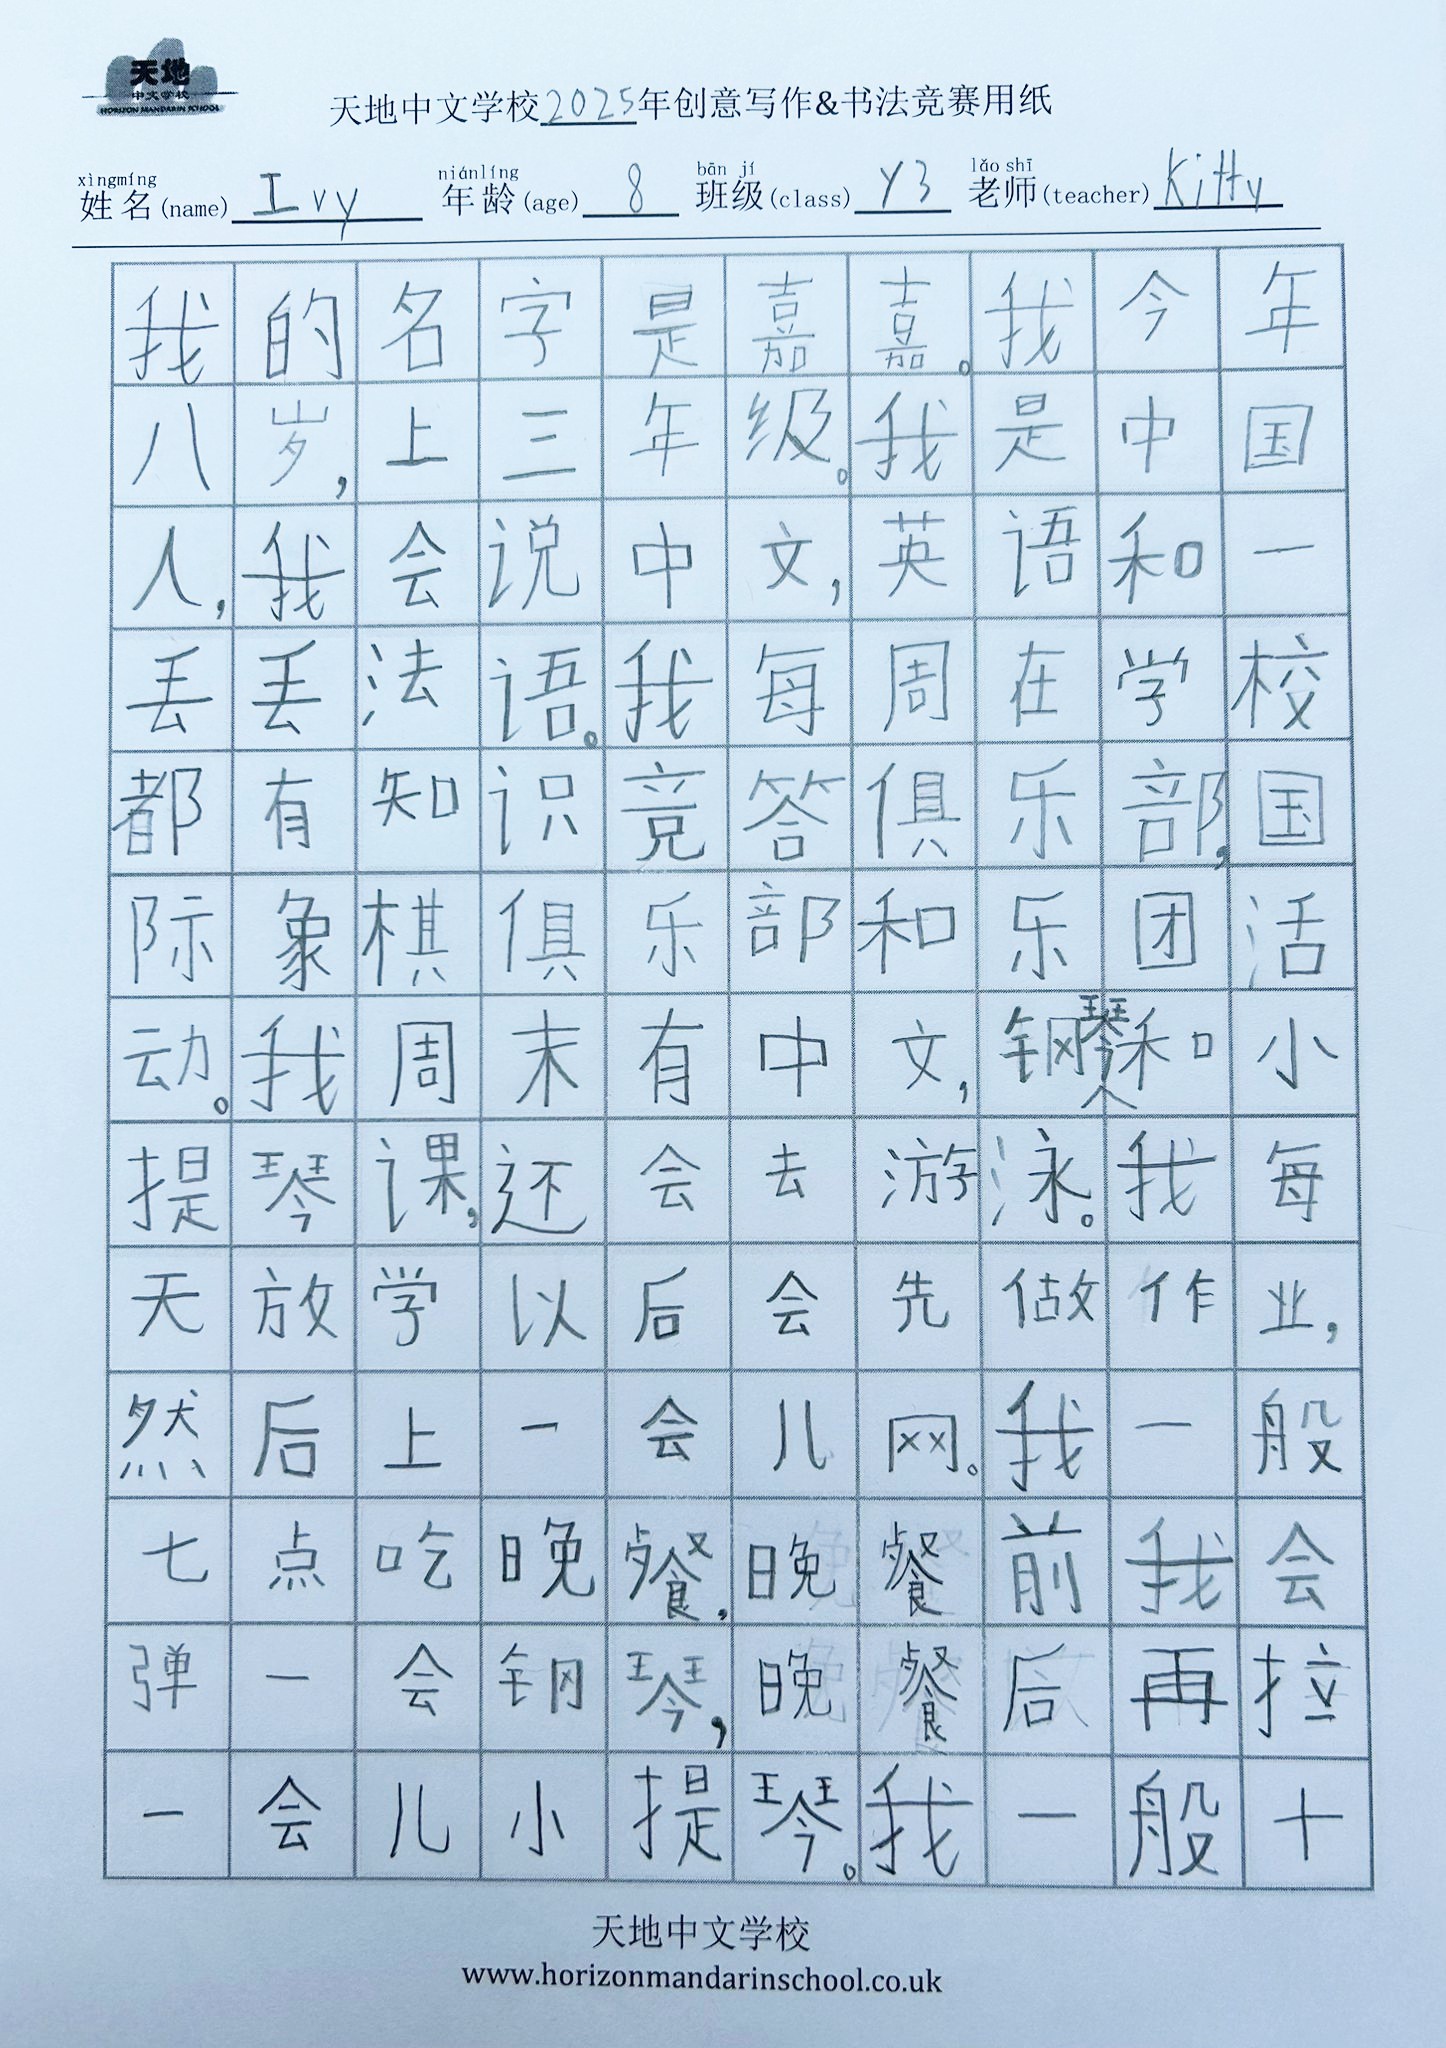 天地
中文学校
HORIZON MANDARIN SCHOOL
天地中文学校2025年创意写作&书法竞赛用纸
xìngmíng niánlíng bān jí lǎo shī
姓名(name) Ivy 年龄(age) 8 班级(class) Y3 老师(teacher) Kitty
我的名字是嘉嘉。我今年
八岁,上三年级。我是中国
人,我会说中文,英语和一
丢丢法语。我每周在学校
都有知识竞答俱乐部,国
际象棋俱乐部和乐团活
动。我周末有中文,钢琴和小
提琴课,还会去游泳。我每
天放学以后会先做作业,
然后上一会儿网。我一般
七点吃晚餐,晚餐前我会
弹一会钢琴,晚餐后再拉
一会儿小提琴。我一般十
天地中文学校
www.horizonmandarinschool.co.uk